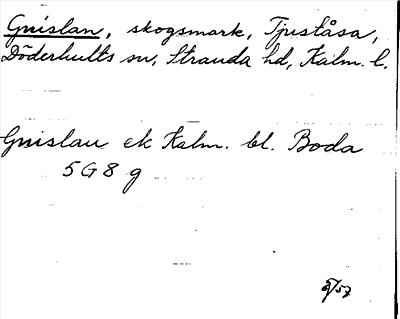 Gnislan, skogsmark, Tjuståsa,
Döderhults sn, Stranda hd, Kalm. l.
Gnislan ek Kalm. bl. Boda
5G8g
57